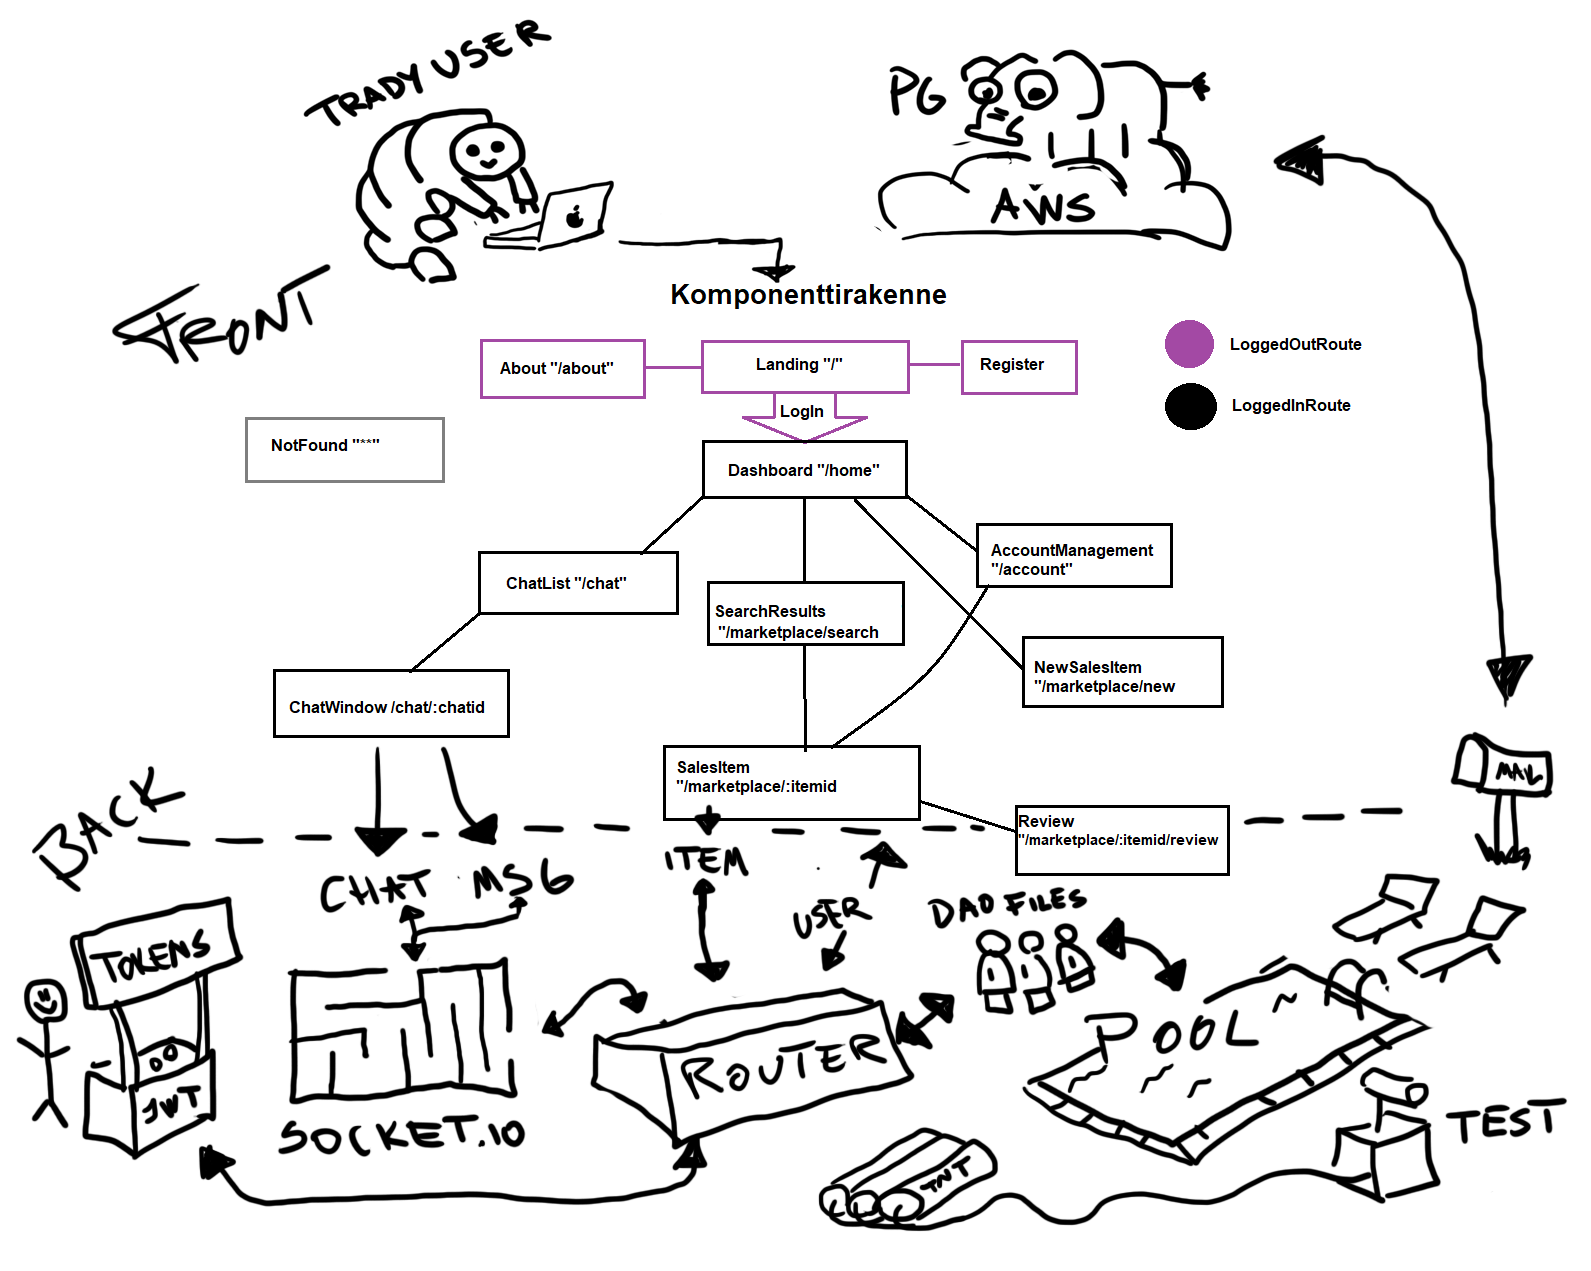 TRADY USER
PG
AWS
FRONT
Komponenttirakenne
About "/about"
Landing "/"
Register
LoggedOutRoute
LoggedInRoute
LogIn
NotFound "**"
Dashboard "/home"
AccountManagement
"/account"
ChatList "/chat"
SearchResults
"/marketplace/search
NewSalesItem
"/marketplace/new
ChatWindow /chat/:chatid
SalesItem
"/marketplace/:itemid
Review
"/marketplace/:itemid/review
MAIL
BACK
CHAT MSG
ITEM
USER
DAO FILES
TOKENS
JWT
SOCKET.IO
ROUTER
POOL
TNT
TEST